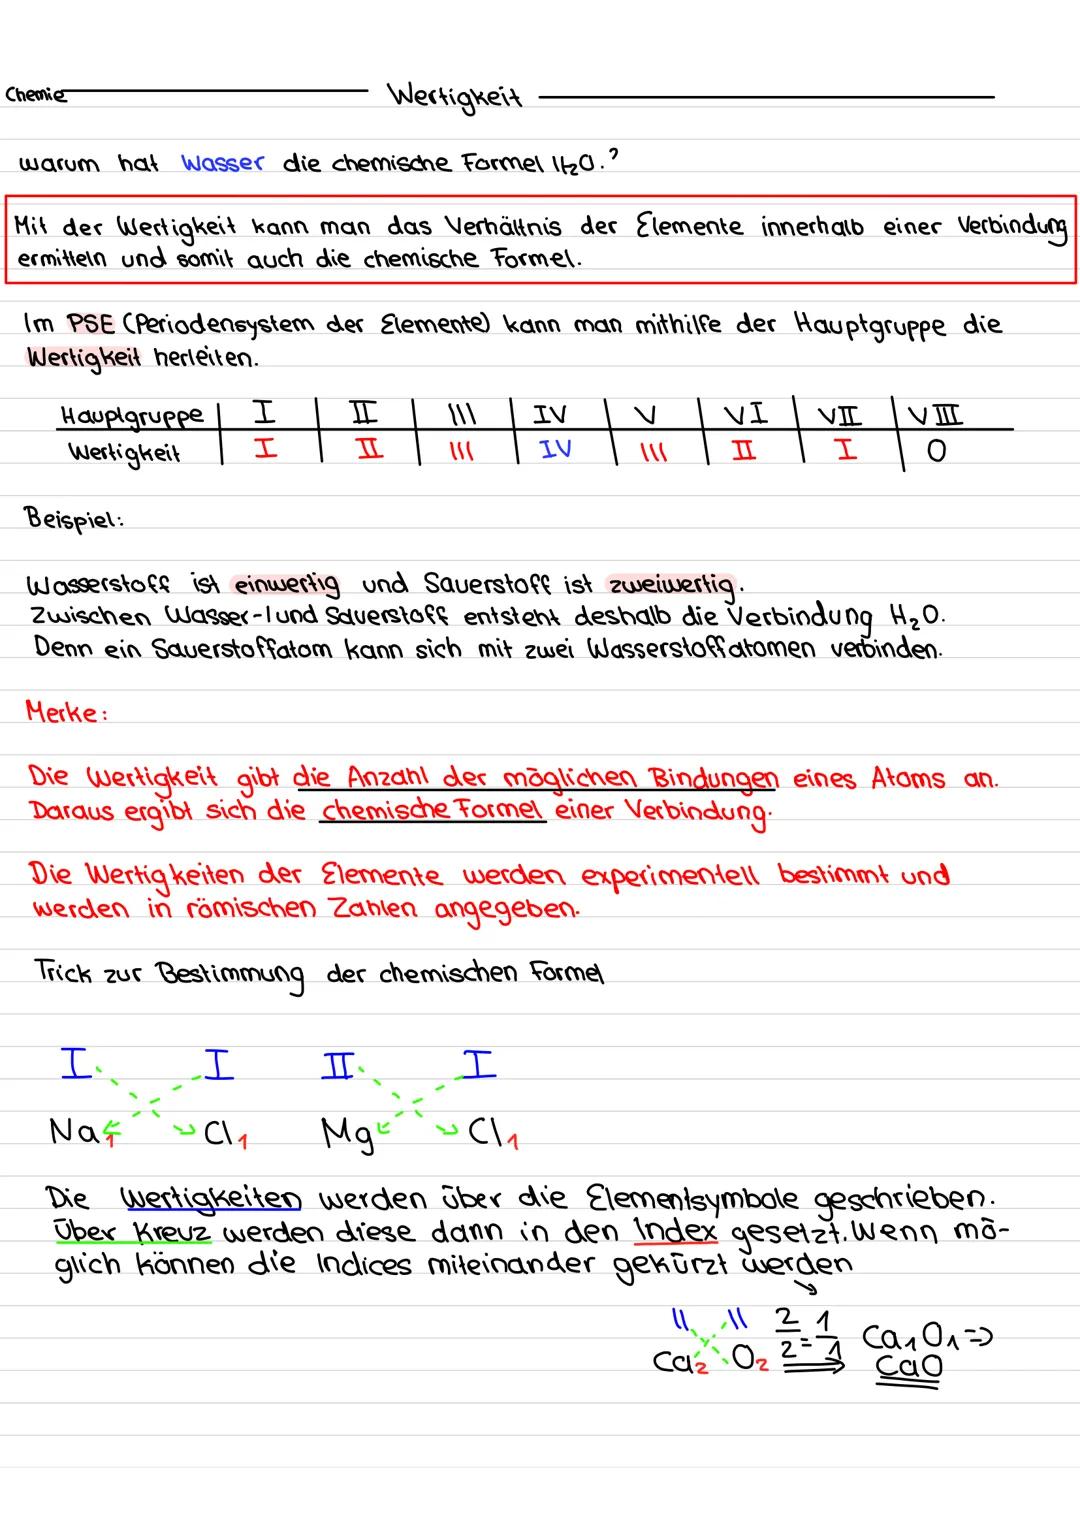 Chemie Wertigkeit
warum hat Wasser die chemische Formel H₂O.?
Mit der Wertigkeit kann man das Verhältnis der Elemente innerhalb einer Verbindung
ermitteln und somit auch die chemische Formel.
Im PSE (Periodensystem der Elemente) kann man mithilfe der Hauptgruppe die
Wertigkeit herleiten.
Hauptgruppe | I | II | III | IV | V | VI | VII | VIII
Wertigkeit | I | II | III | IV | III | II | I | 0
Beispiel:
Wasserstoff ist einwertig und Sauerstoff ist zweiwertig.
Zwischen Wasser-/und Sauerstoff entsteht deshalb die Verbindung H₂O.
Denn ein Sauerstoffatom kann sich mit zwei Wasserstoffatomen verbinden.
Merke:
Die Wertigkeit gibt die Anzahl der möglichen Bindungen eines Atoms an.
Daraus ergibt sich die chemische Formel einer Verbindung.
Die Wertigkeiten der Elemente werden experimentell bestimmt und
werden in römischen Zahlen angegeben.
Trick zur Bestimmung der chemischen Formel
I I II I
Na₁ Cl₁ Mg Cl₁
Die Wertigkeiten werden über die Elementsymbole geschrieben.
Über Kreuz werden diese dann in den Index gesetzt. Wenn mö-
glich können die Indices miteinander gekürzt werden
II II 2/2 = 1/1 Ca₁O₁ =>
Ca₂ O₂ CaO